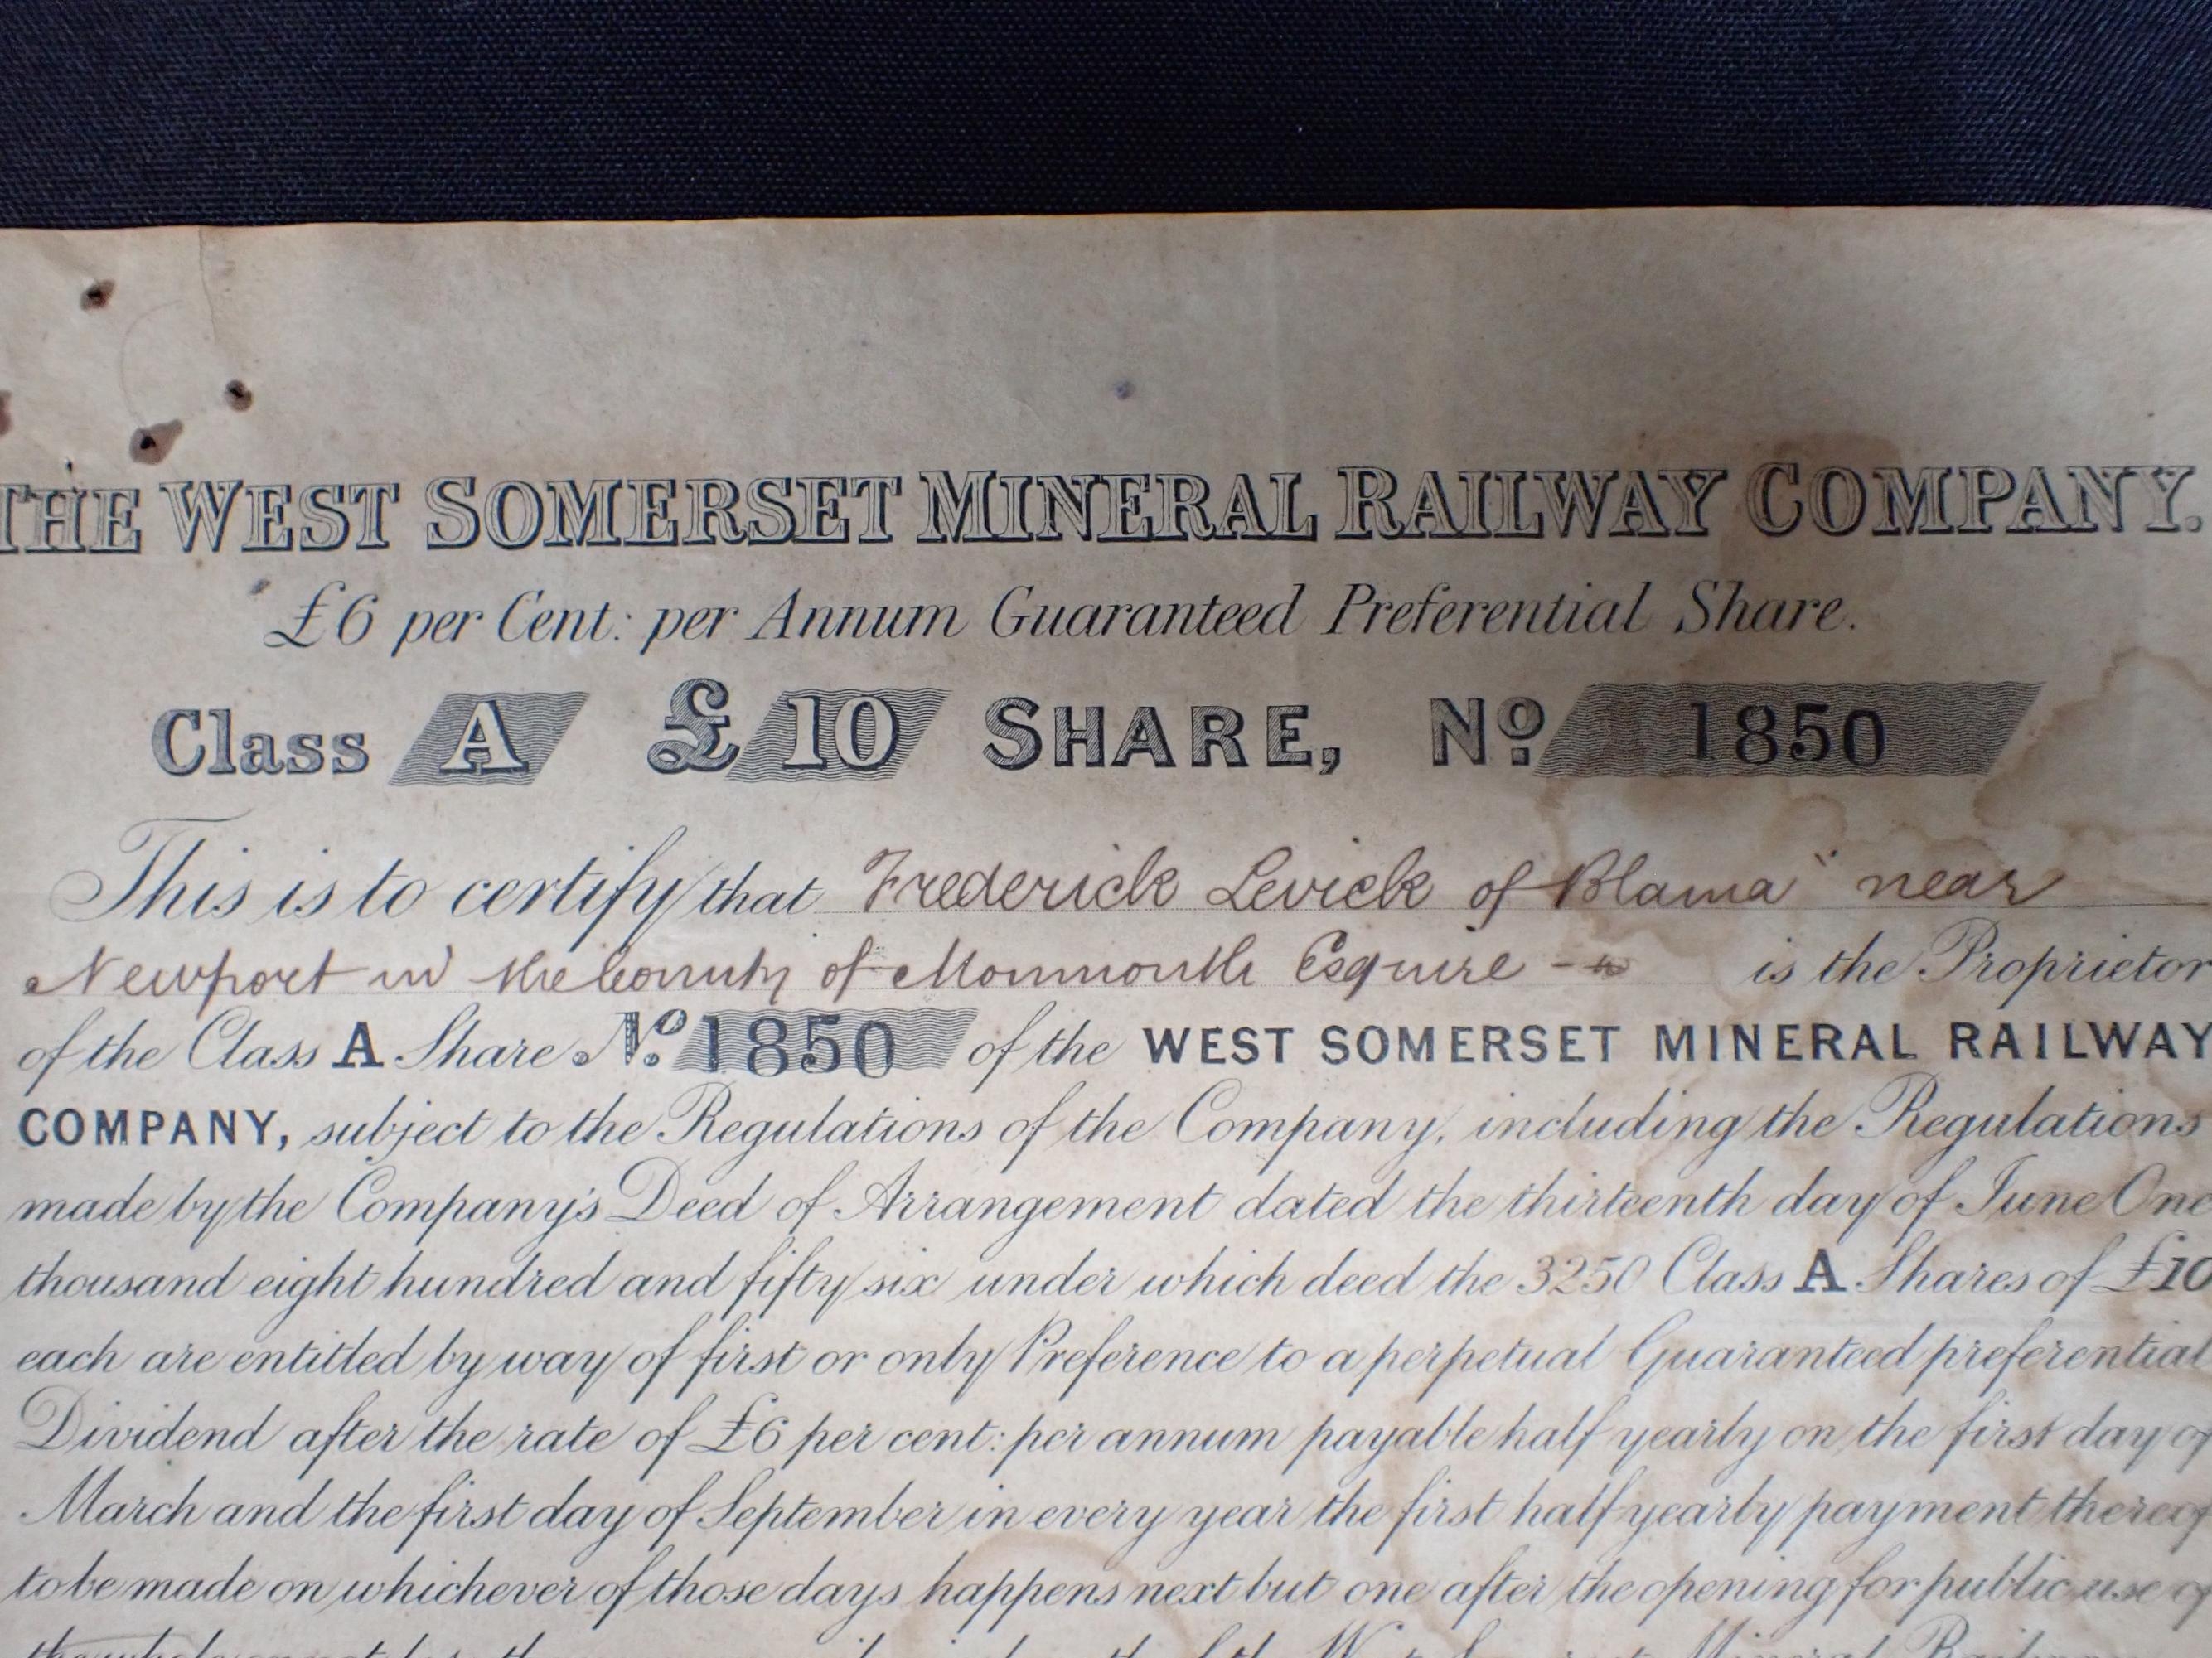 THE WEST SOMERSET MINERAL RAILWAY COMPANY.
£6 per Cent: per Annum Guaranteed Preferential Share.
Class A £10 SHARE, No. 1850
This is to certify that Frederick Levick of Blaina near
Newport in the County of Monmouth Esquire is the Proprietor
of the Class A Share No. 1850 of the WEST SOMERSET MINERAL RAILWAY
COMPANY, subject to the Regulations of the Company, including the Regulations
made by the Company's Deed of Arrangement dated the thirteenth day of June One
thousand eight hundred and fifty six under which deed the 3250 Class A Shares of £10
each are entitled by way of first or only Preference to a perpetual Guaranteed preferential
Dividend after the rate of £6 per cent: per annum payable half yearly on the first day of
March and the first day of September in every year the first half yearly payment thereof
to be made on whichever of those days happens next but one after the opening for public use of
the whole Mineral Railway